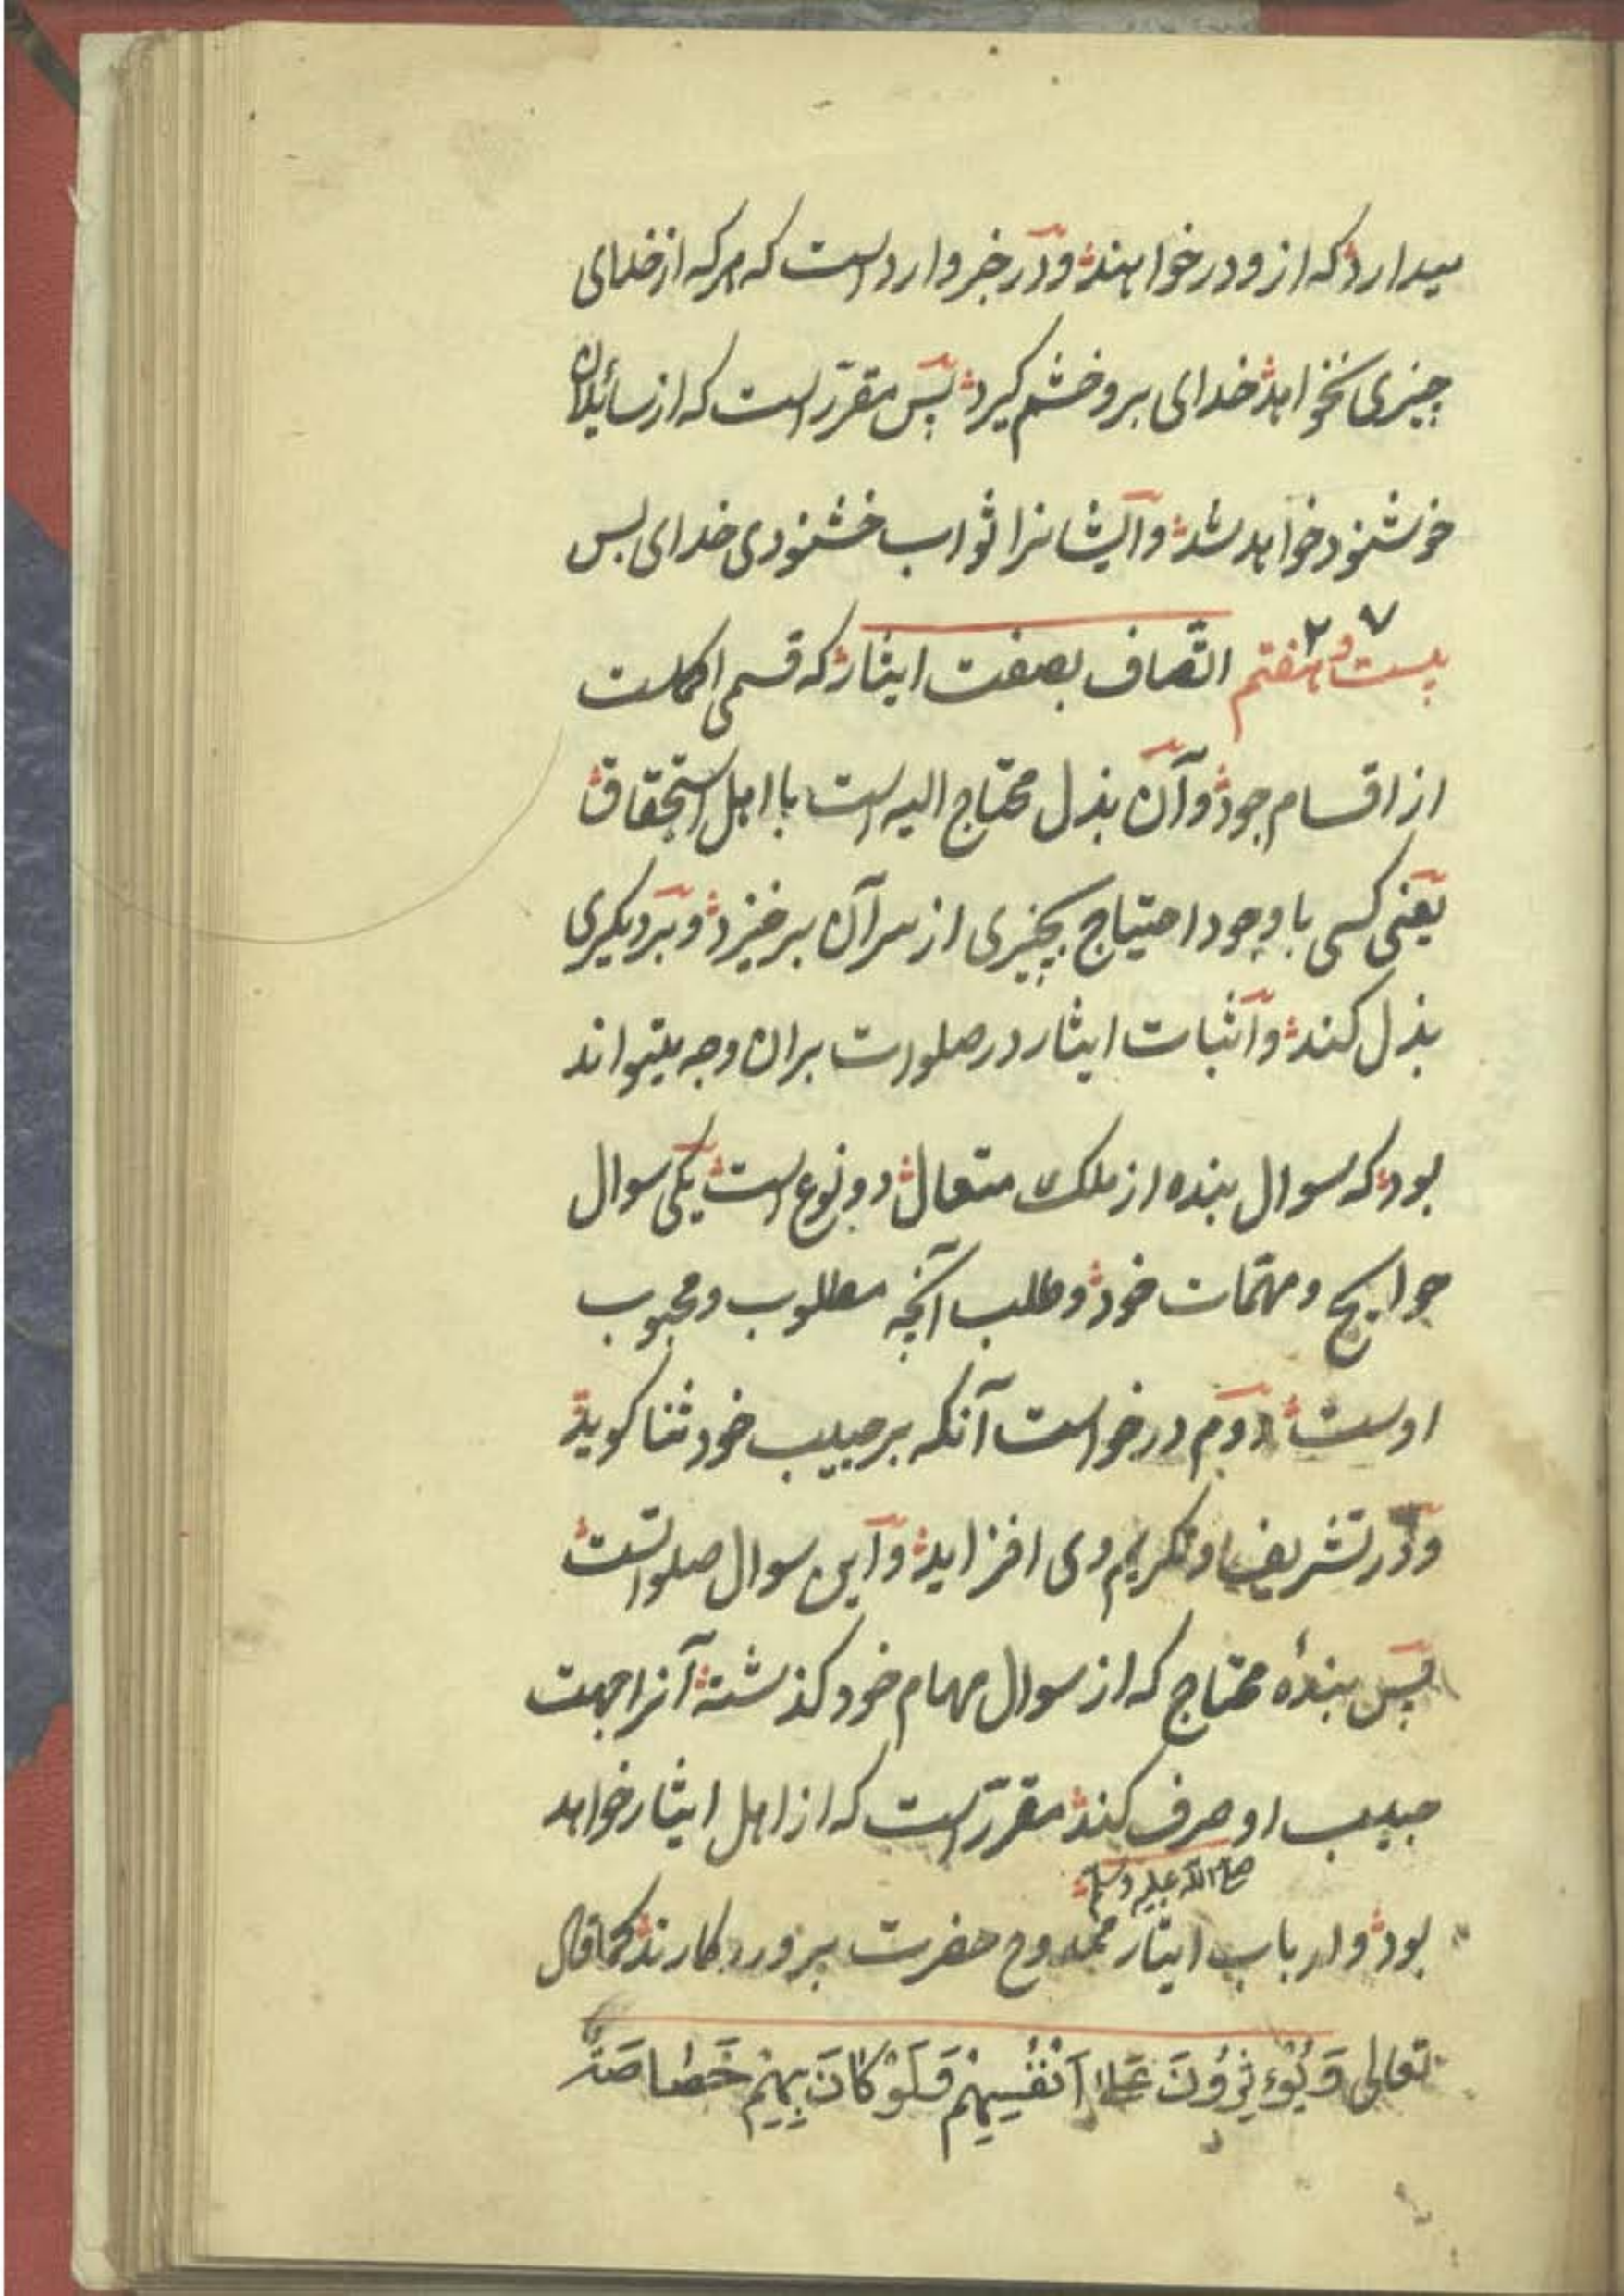 میدارد که ازو درخواهند و در خبر وارد است که هرکه از خدای
چیزی نخواهد خدای برو خشم کیرد پس مقرّر است که از سائلان
خوشنود خواهد شد و ایشانرا ثواب خشنودی خدای بس
بیست و هفتم ۲۷ اتّصاف بصفت ایثار که قسمی اکملست
از اقسام جود و آن بذل محتاج الیه است با اهل استحقاق
یعنی کسی با وجود احتیاج بچیزی از سر آن برخیزد و بر دیکری
بذل کند و اثبات ایثار در صلوات بران وجه میتواند
بود که سوال بنده از ملک متعال دو نوع است یکی سوال
حوایج و مهمّات خود و طلب آنچه مطلوب و محبوب
اوست دوم درخواست آنکه بر حبیب خود ثنا کوید
و در تشریف و تکریم وی افزاید و این سوال صلواتست
پس بندهٔ محتاج که از سوال مهام خود کذشته آنرا جهت
حبیب او صرف کند مقرّر است که از اهل ایثار خواهد
صلی الله علیه وسلم
بود و ارباب ایثار ممدوح حضرت پروردکارند کما قال
تعالی وَیُؤْثِرُونَ عَلی اَنْفُسِهِمْ وَلَوْ کَانَ بِهِمْ خَصَاصَةٌ